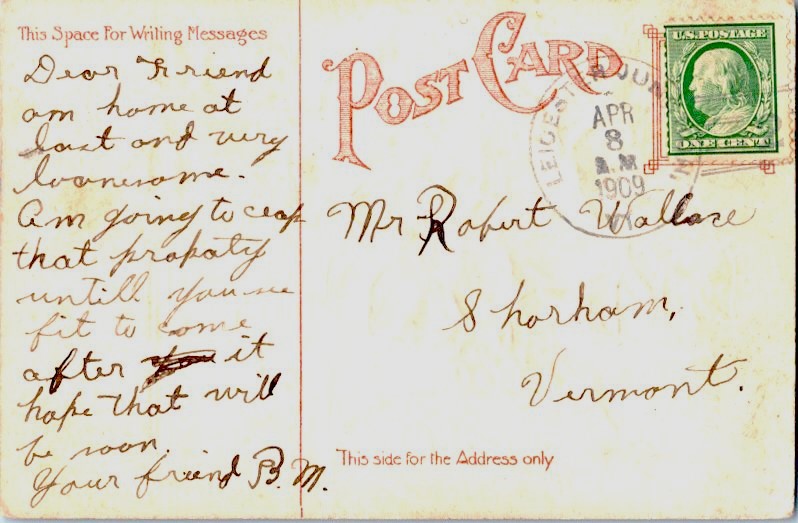 This Space For Writing Messages
POST CARD
U.S. POSTAGE
ONE CENT
LEICESTER JUN
APR
8
A.M
1909
Dear Friend
am home at
last and very
loonesome.
Am going to ceap
that propaty
untill you see
fit to come
after it
hope that will
be soon.
Your friend B. M.
Mr Robert Wallace
Shorham,
Vermont.
This side for the Address only